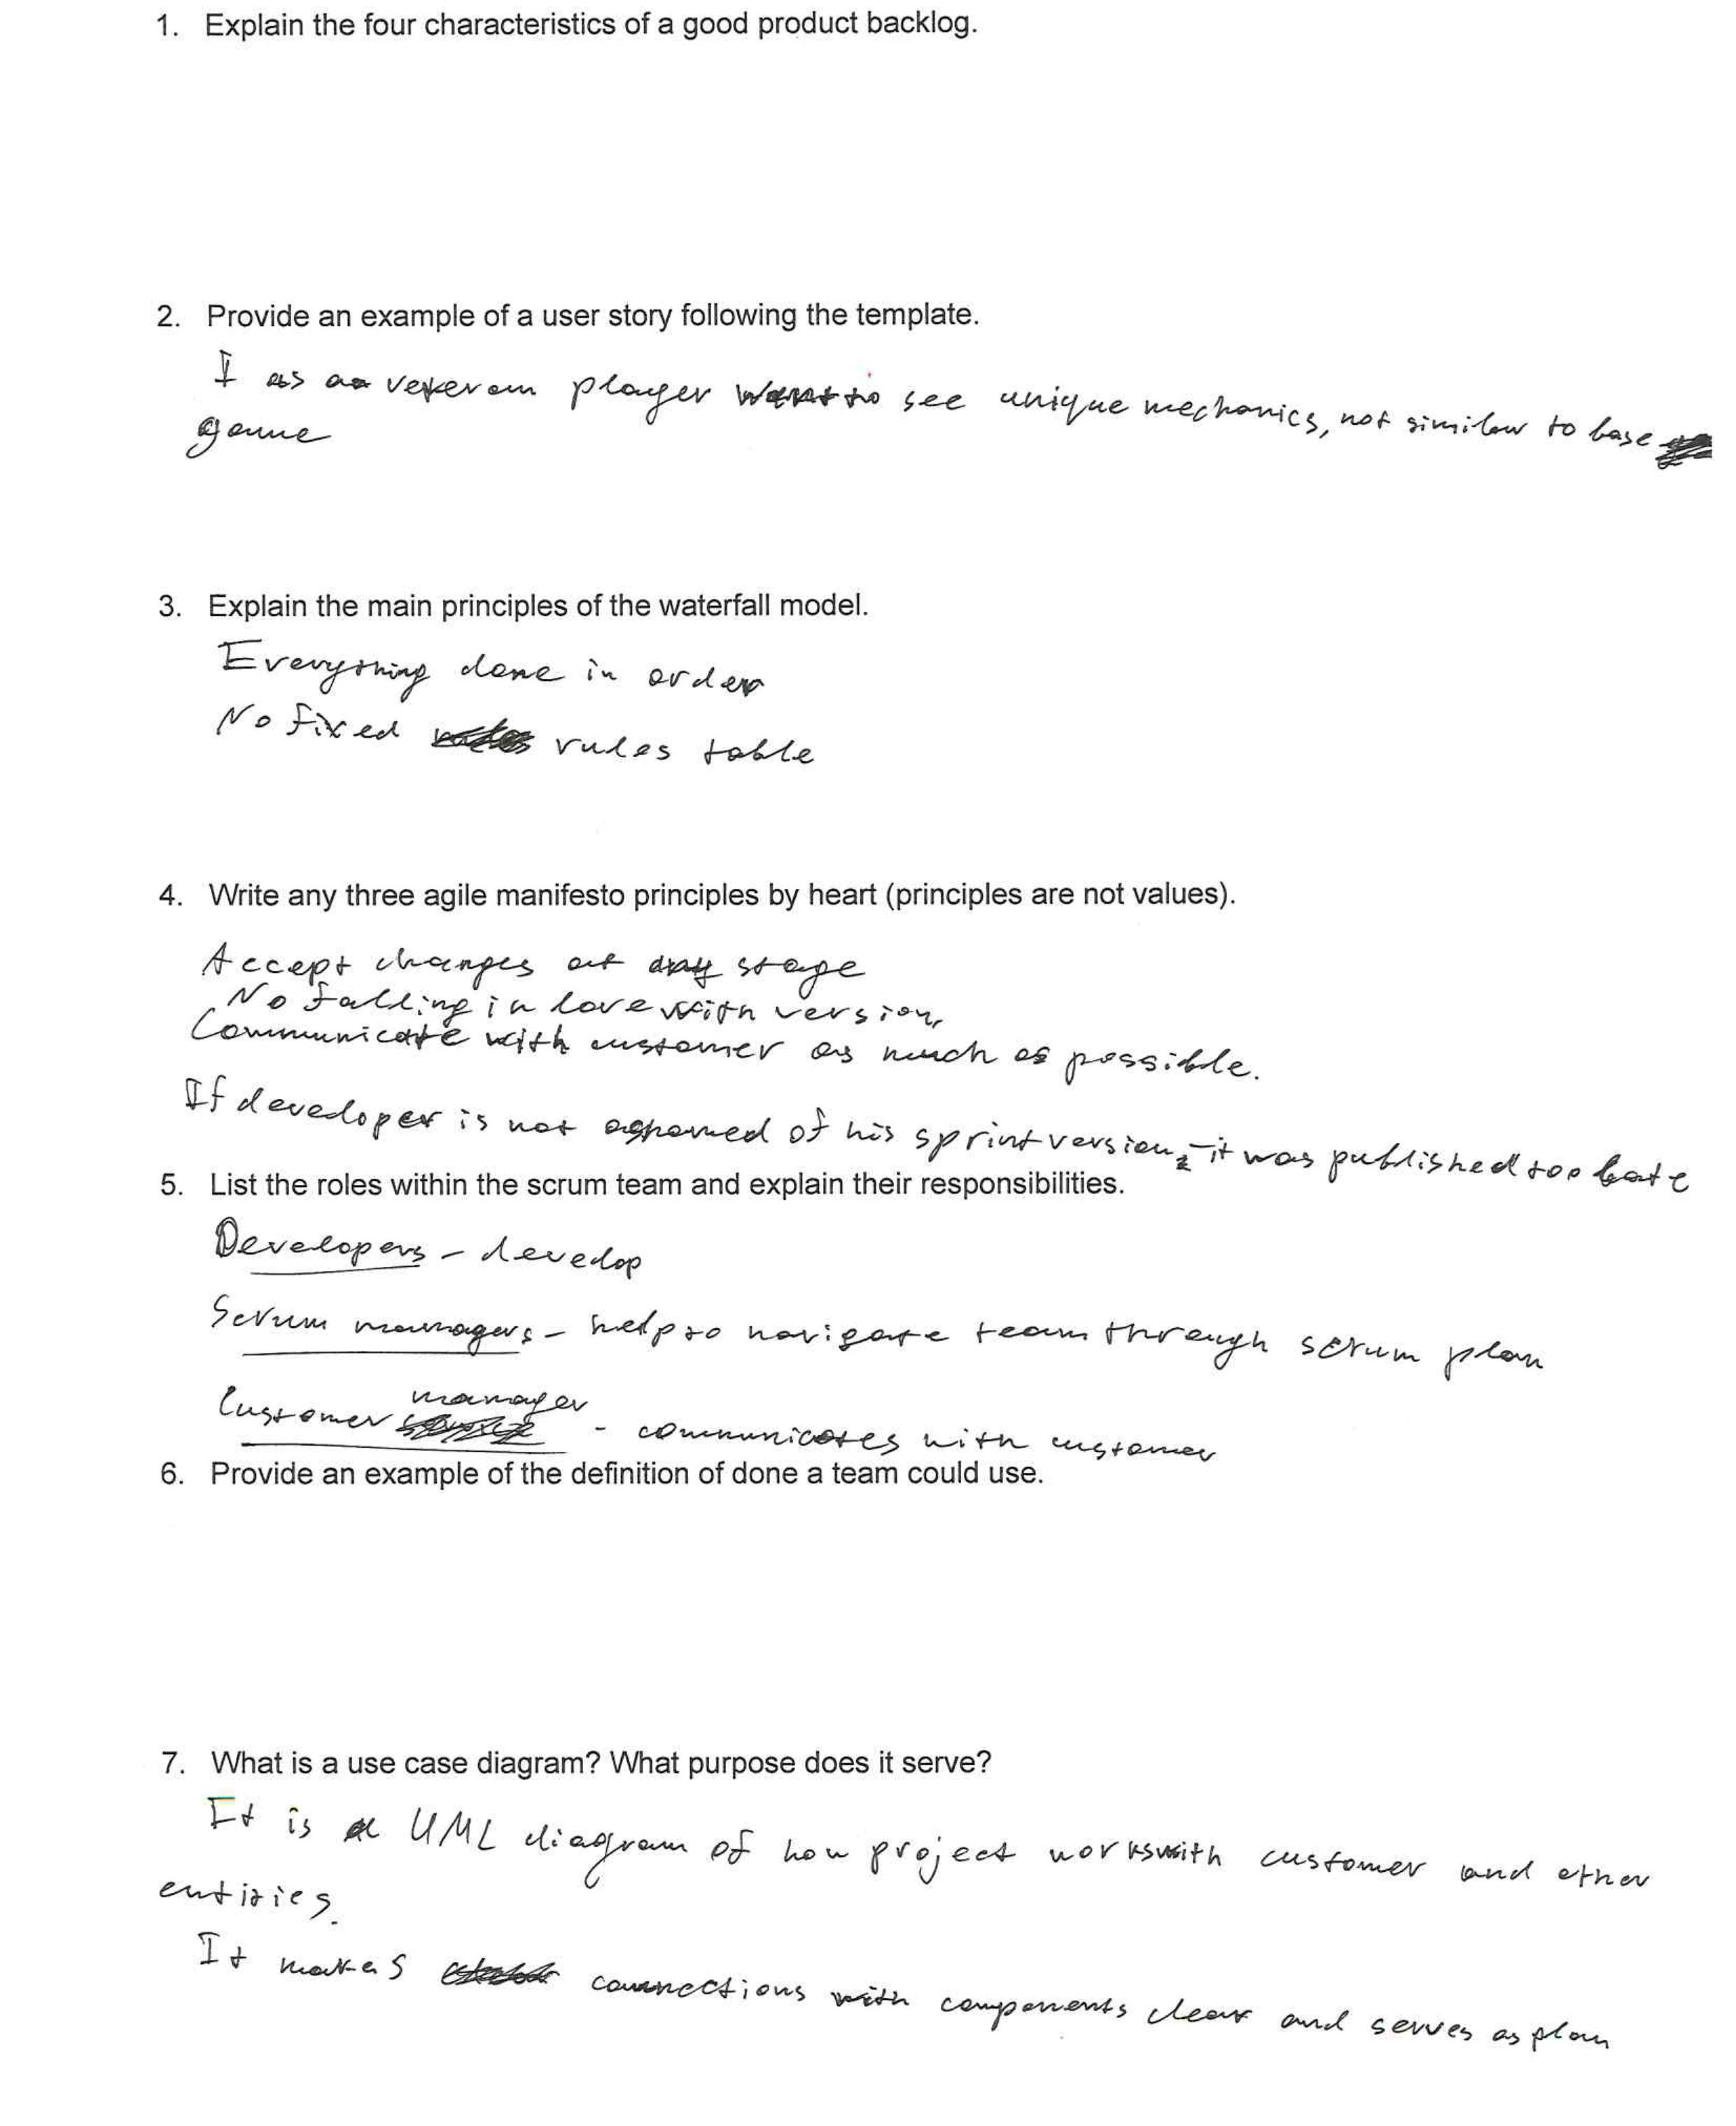 1. Explain the four characteristics of a good product backlog.
2. Provide an example of a user story following the template.
I as a veteran player want to see unique mechanics, not similar to base
game
3. Explain the main principles of the waterfall model.
Everything done in order
No fixed rules table
4. Write any three agile manifesto principles by heart (principles are not values).
Accept changes at any stage
No falling in love with version
Communicate with customer as much as possible.
If developer is not ashamed of his sprint version, - it was published too late
5. List the roles within the scrum team and explain their responsibilities.
Developers - develop
Scrum managers - help to navigate team through scrum plan
Customer manager - communicates with customer
6. Provide an example of the definition of done a team could use.
7. What is a use case diagram? What purpose does it serve?
It is a UML diagram of how project works with customer and other
entities.
It makes connections with components clear and serves as plan